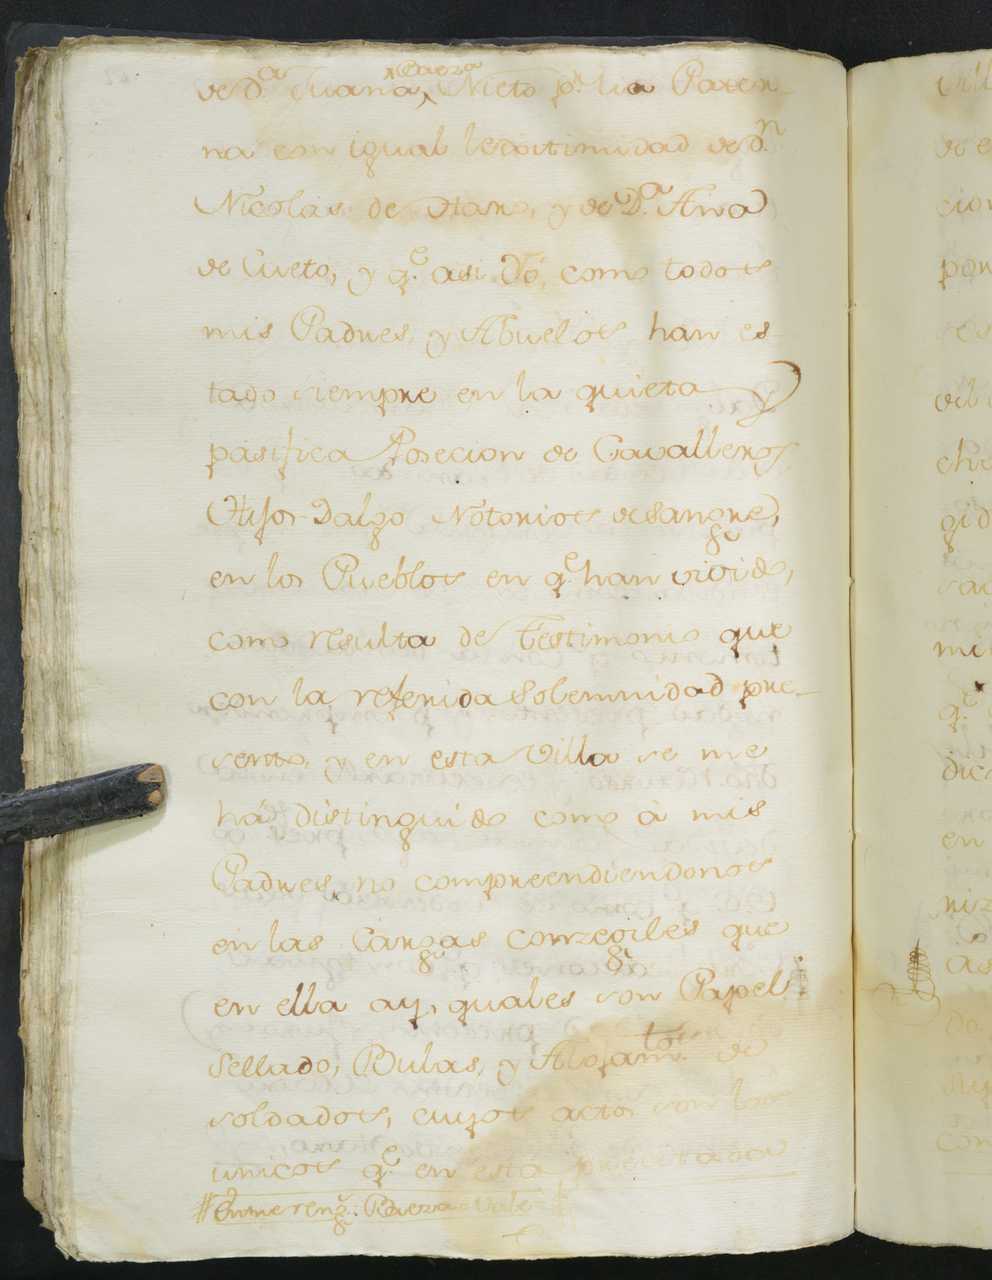 Baeza
de D.ª Juana, Nieto p.r lia Pater-
na con igual lexitimidad de d.n
Nicolás de Haro, y de D.ª Ana
de Cueto, y q.e asi Yó, como todos
mis Padres, y Abuelos han es-
tado siempre en la quieta y
pasifica Posecion de Cavalleros
Hijos Dalgo Notorios de sangre,
en los Pueblos en q.e han vivido,
como resulta de Testimonio que
con la referida solemnidad pre-
sento, y en esta Villa se me
há distinguido como à mis
Padres, no compreendiendonos
en las Cargas conzegiles que
en ella ay, quales son Papel
Sellado, Bulas, y Alojam.tos de
soldados, cuyos actos son los
unicos q.e en esta
Enmereng.s Baeza = Vale